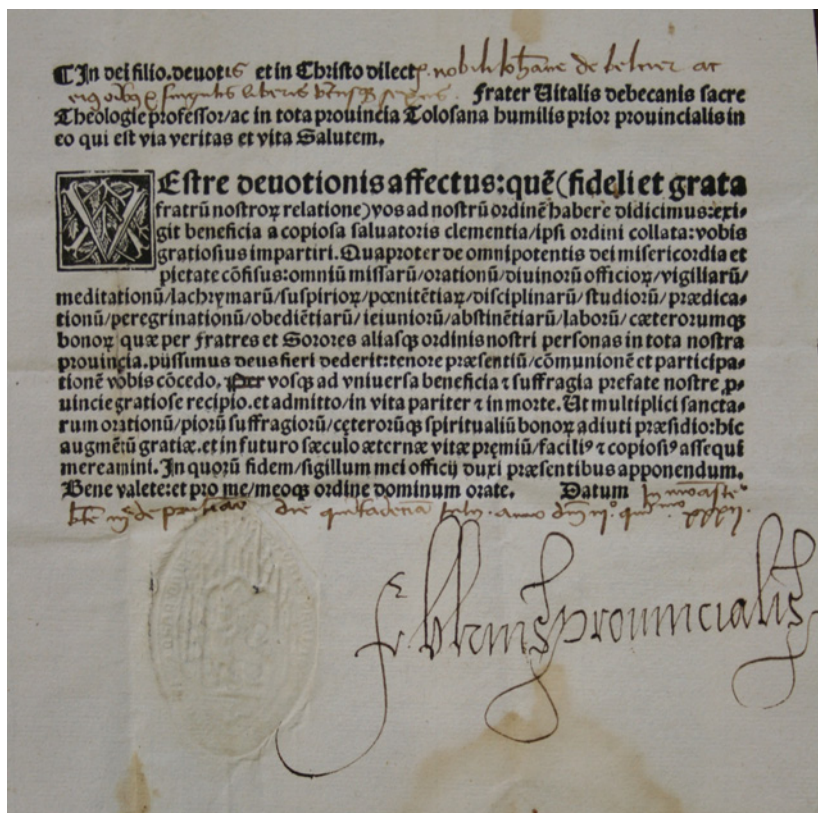 ¶In dei filio.deuotis et in Christo dilect. nobili Joh̄ane de ac
singulis liberis Frater Uitalis debecanis sacre
Theologie professor/ac in tota prouincia Tolosana humilis prior prouincialis in
eo qui est via veritas et vita Salutem.
VEstre deuotionis affectus:quē(fideli et grata
fratrū nostroꝝ relatione)vos ad nostrū ordinē habere didicimus:exi-
git beneficia a copiosa saluatoris clementia/ipsi ordini collata:vobis
gratiosius impartiri.Quaproter de omnipotentis dei misericordia et
pietate cōfisus:omniū missarū/orationū/diuinorū officioꝝ/vigiliarū/
meditationū/lachrymarū/suspirioꝝ/pœnitētiaꝝ/disciplinarū/studiorū/prædica-
tionū/peregrinationū/obediētiarū/ieiuniorū/abstinētiarū/laborū/cæterorumqꝫ
bonoꝝ quæ per fratres et Sorores aliasqꝫ ordinis nostri personas in tota nostra
prouincia.piissimus deus fieri dederit:tenore præsentiū/cōmunionē et participa-
tionē vobis cōcedo. Per vosqꝫ ad vniuersa beneficia ⁊ suffragia prefate nostre ꝓ-
uincie gratiose recipio.et admitto/in vita pariter ⁊ in morte.Ut multiplici sancta-
rum orationū/piorū suffragiorū/cęterorūqꝫ spiritualiū bonoꝝ adiuti præsidio:hic
augmētū gratiæ.et in futuro sæculo æternæ vitæ pręmiū/faciliꝰ ⁊ copiosiꝰ assequi
mereamini.In quorū fidem/sigillum mei officij duxi præsentibus apponendum.
Bene valete:et pro me/meoqꝫ ordine dominum orate. Datum In
de die anno xxxii.
fr prouincialis